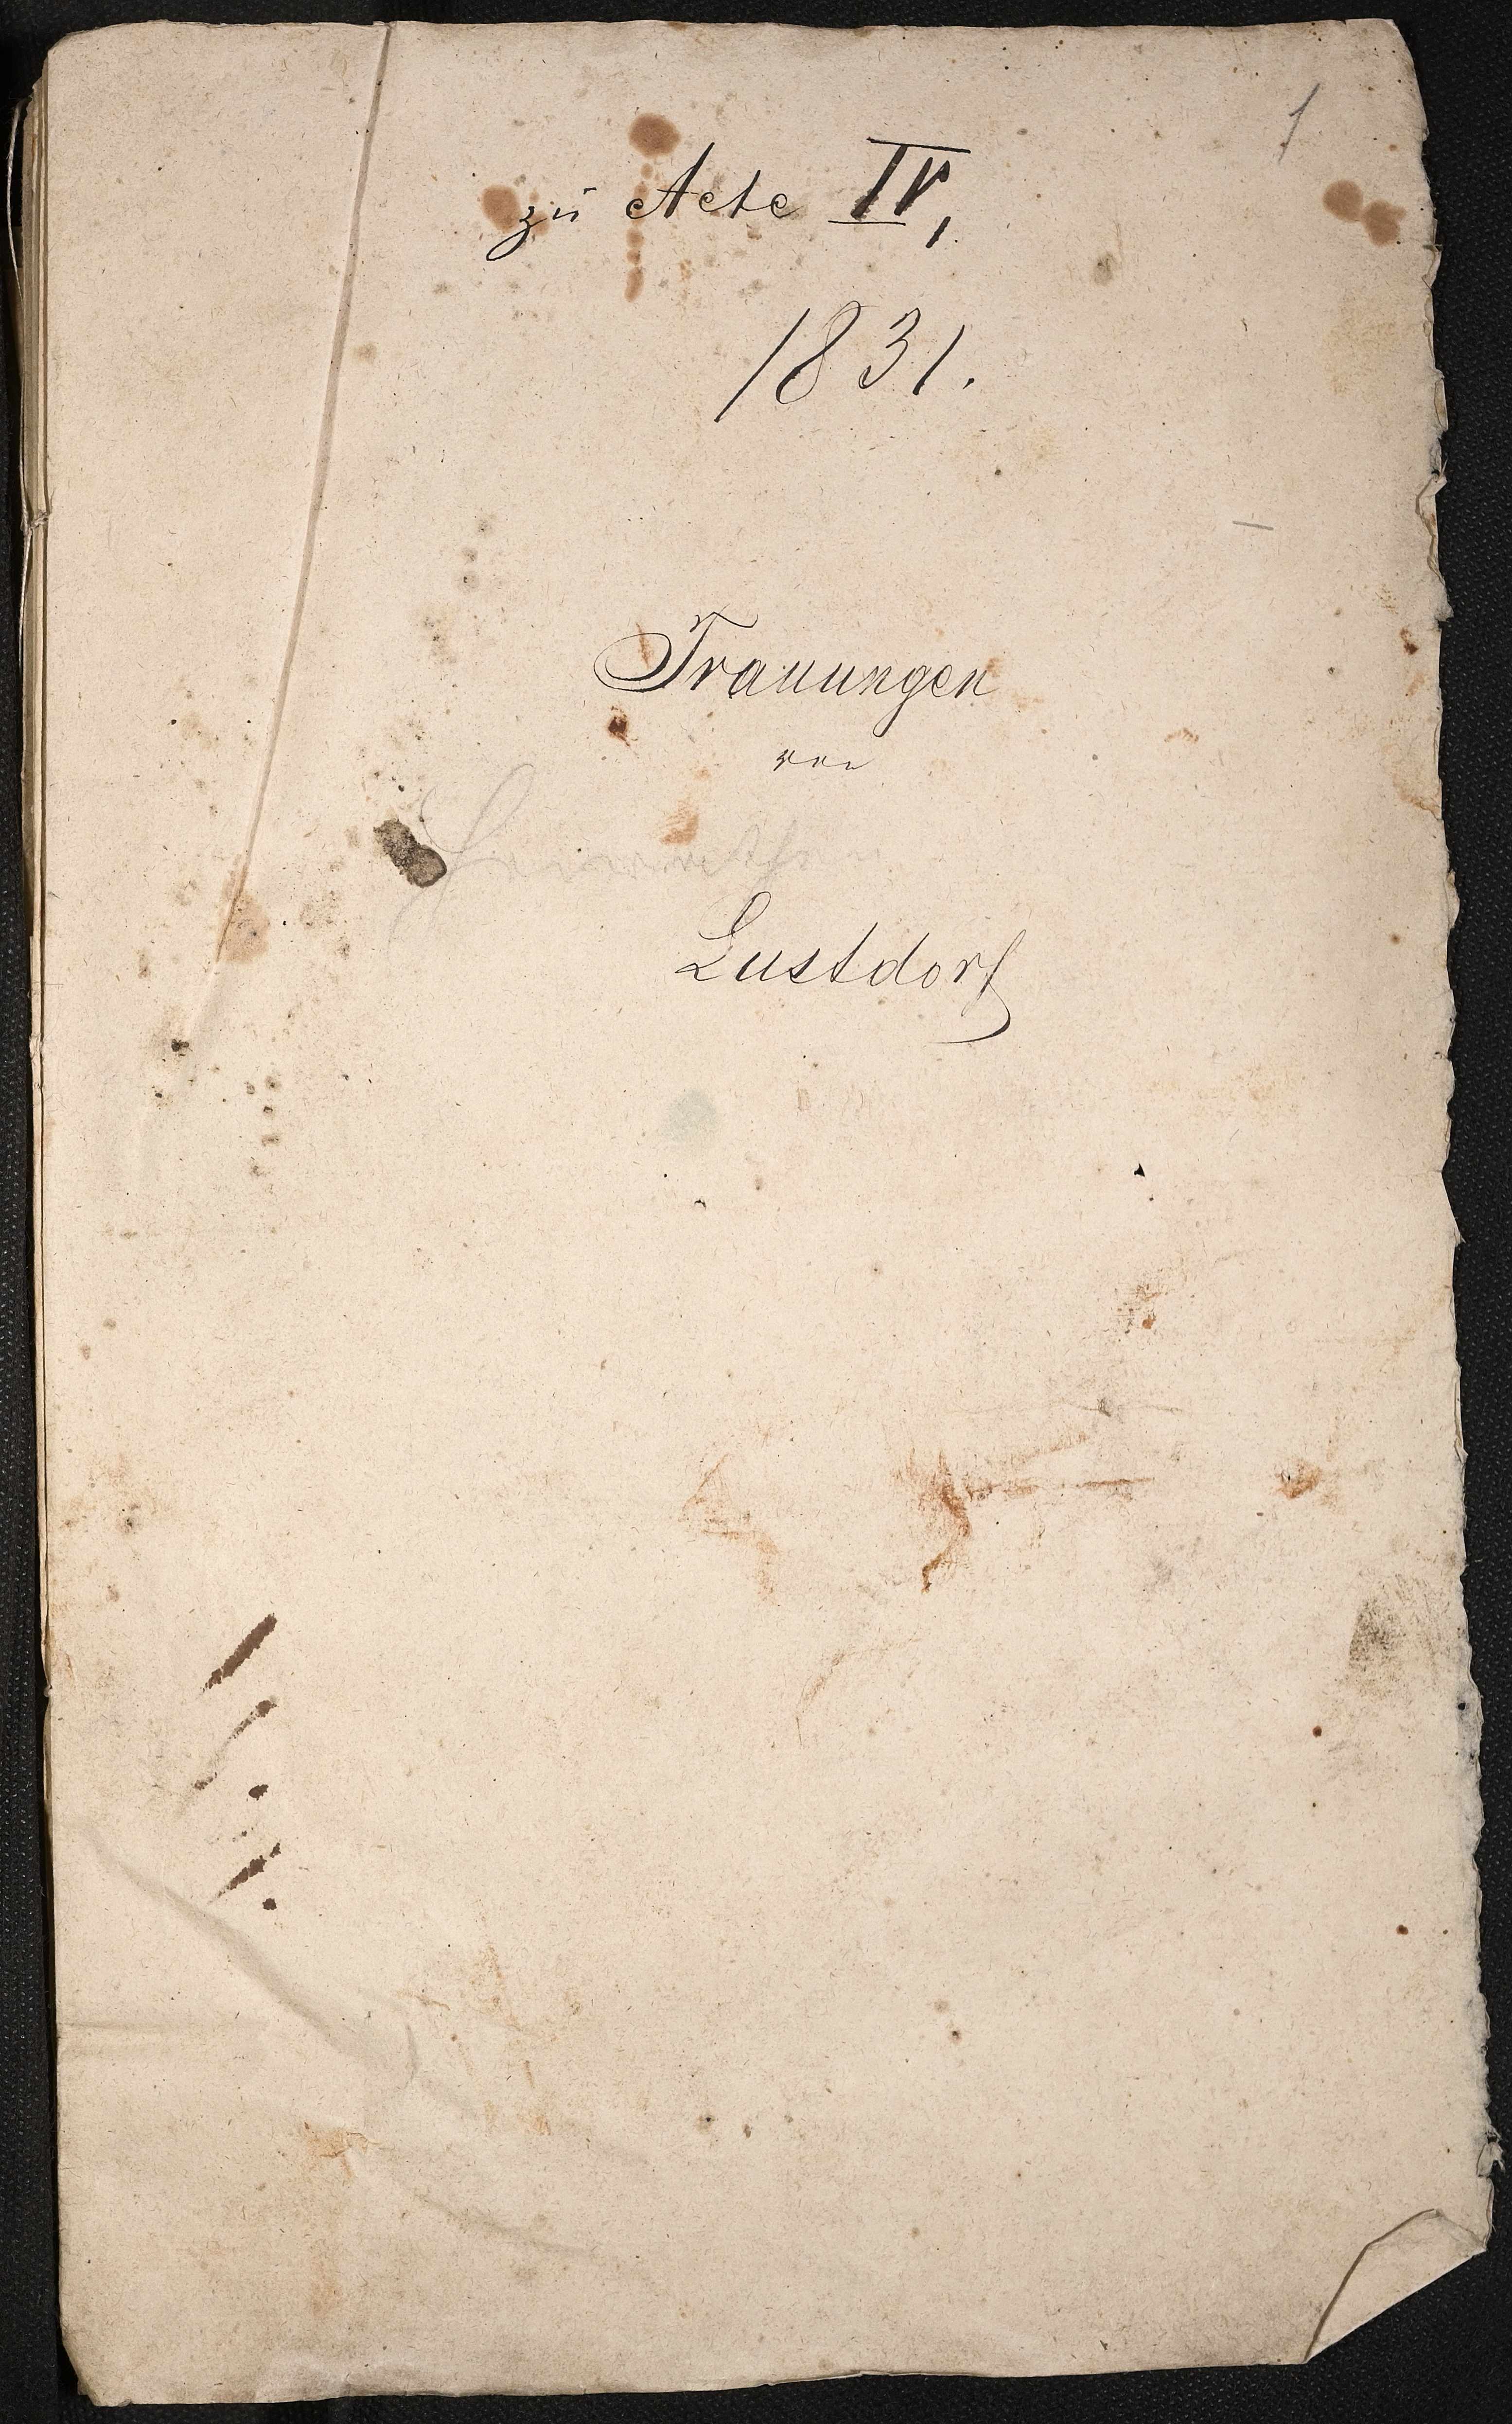 1
zu Acte IV,
1831.
Trauungen
von
Lustdorf